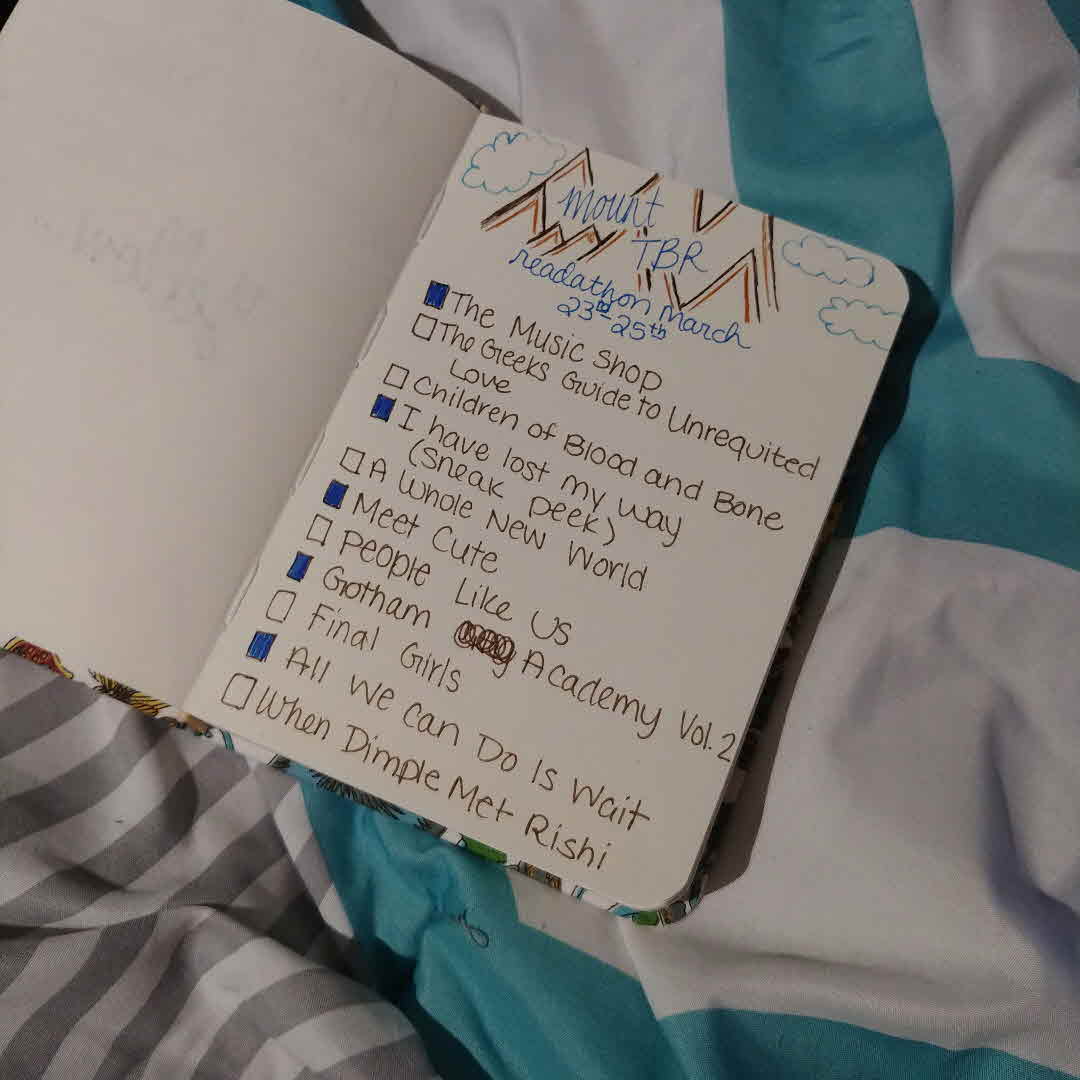 mount
TBR
readathon March
23rd-25th
The Music Shop
The Geeks Guide to Unrequited
Love
Children of Blood and Bone
I have lost my way
(sneak peek)
A Whole New World
Meet Cute
People Like Us
Gotham Academy Vol. 2
Final Girls
All We Can Do Is Wait
When Dimple Met Rishi